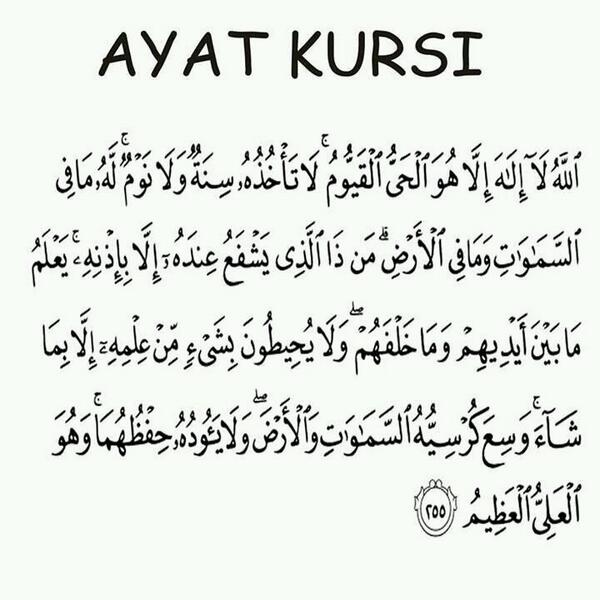 AYAT KURSI
ٱللَّهُ لَآ إِلَٰهَ إِلَّا هُوَ ٱلْحَىُّ ٱلْقَيُّومُ ۚ لَا تَأْخُذُهُۥ سِنَةٌ وَلَا نَوْمٌ ۚ لَّهُۥ مَا فِى
ٱلسَّمَٰوَٰتِ وَمَا فِى ٱلْأَرْضِ ۗ مَن ذَا ٱلَّذِى يَشْفَعُ عِندَهُۥٓ إِلَّا بِإِذْنِهِۦ ۚ يَعْلَمُ
مَا بَيْنَ أَيْدِيهِمْ وَمَا خَلْفَهُمْ ۖ وَلَا يُحِيطُونَ بِشَىْءٍ مِّنْ عِلْمِهِۦٓ إِلَّا بِمَا
شَآءَ ۚ وَسِعَ كُرْسِيُّهُ ٱلسَّمَٰوَٰتِ وَٱلْأَرْضَ ۖ وَلَا يَـُٔودُهُۥ حِفْظُهُمَا ۚ وَهُوَ
ٱلْعَلِىُّ ٱلْعَظِيمُ ٢٥٥